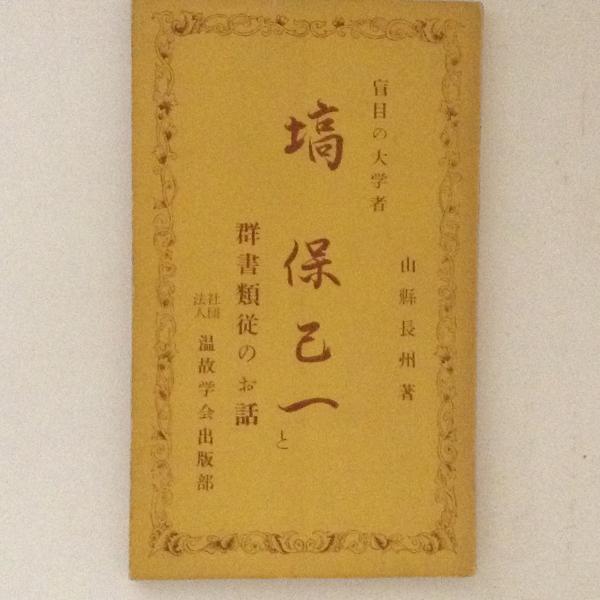 山縣長州著
盲目の大学者
塙保己一と
群書類従のお話
社団法人
温故学会出版部